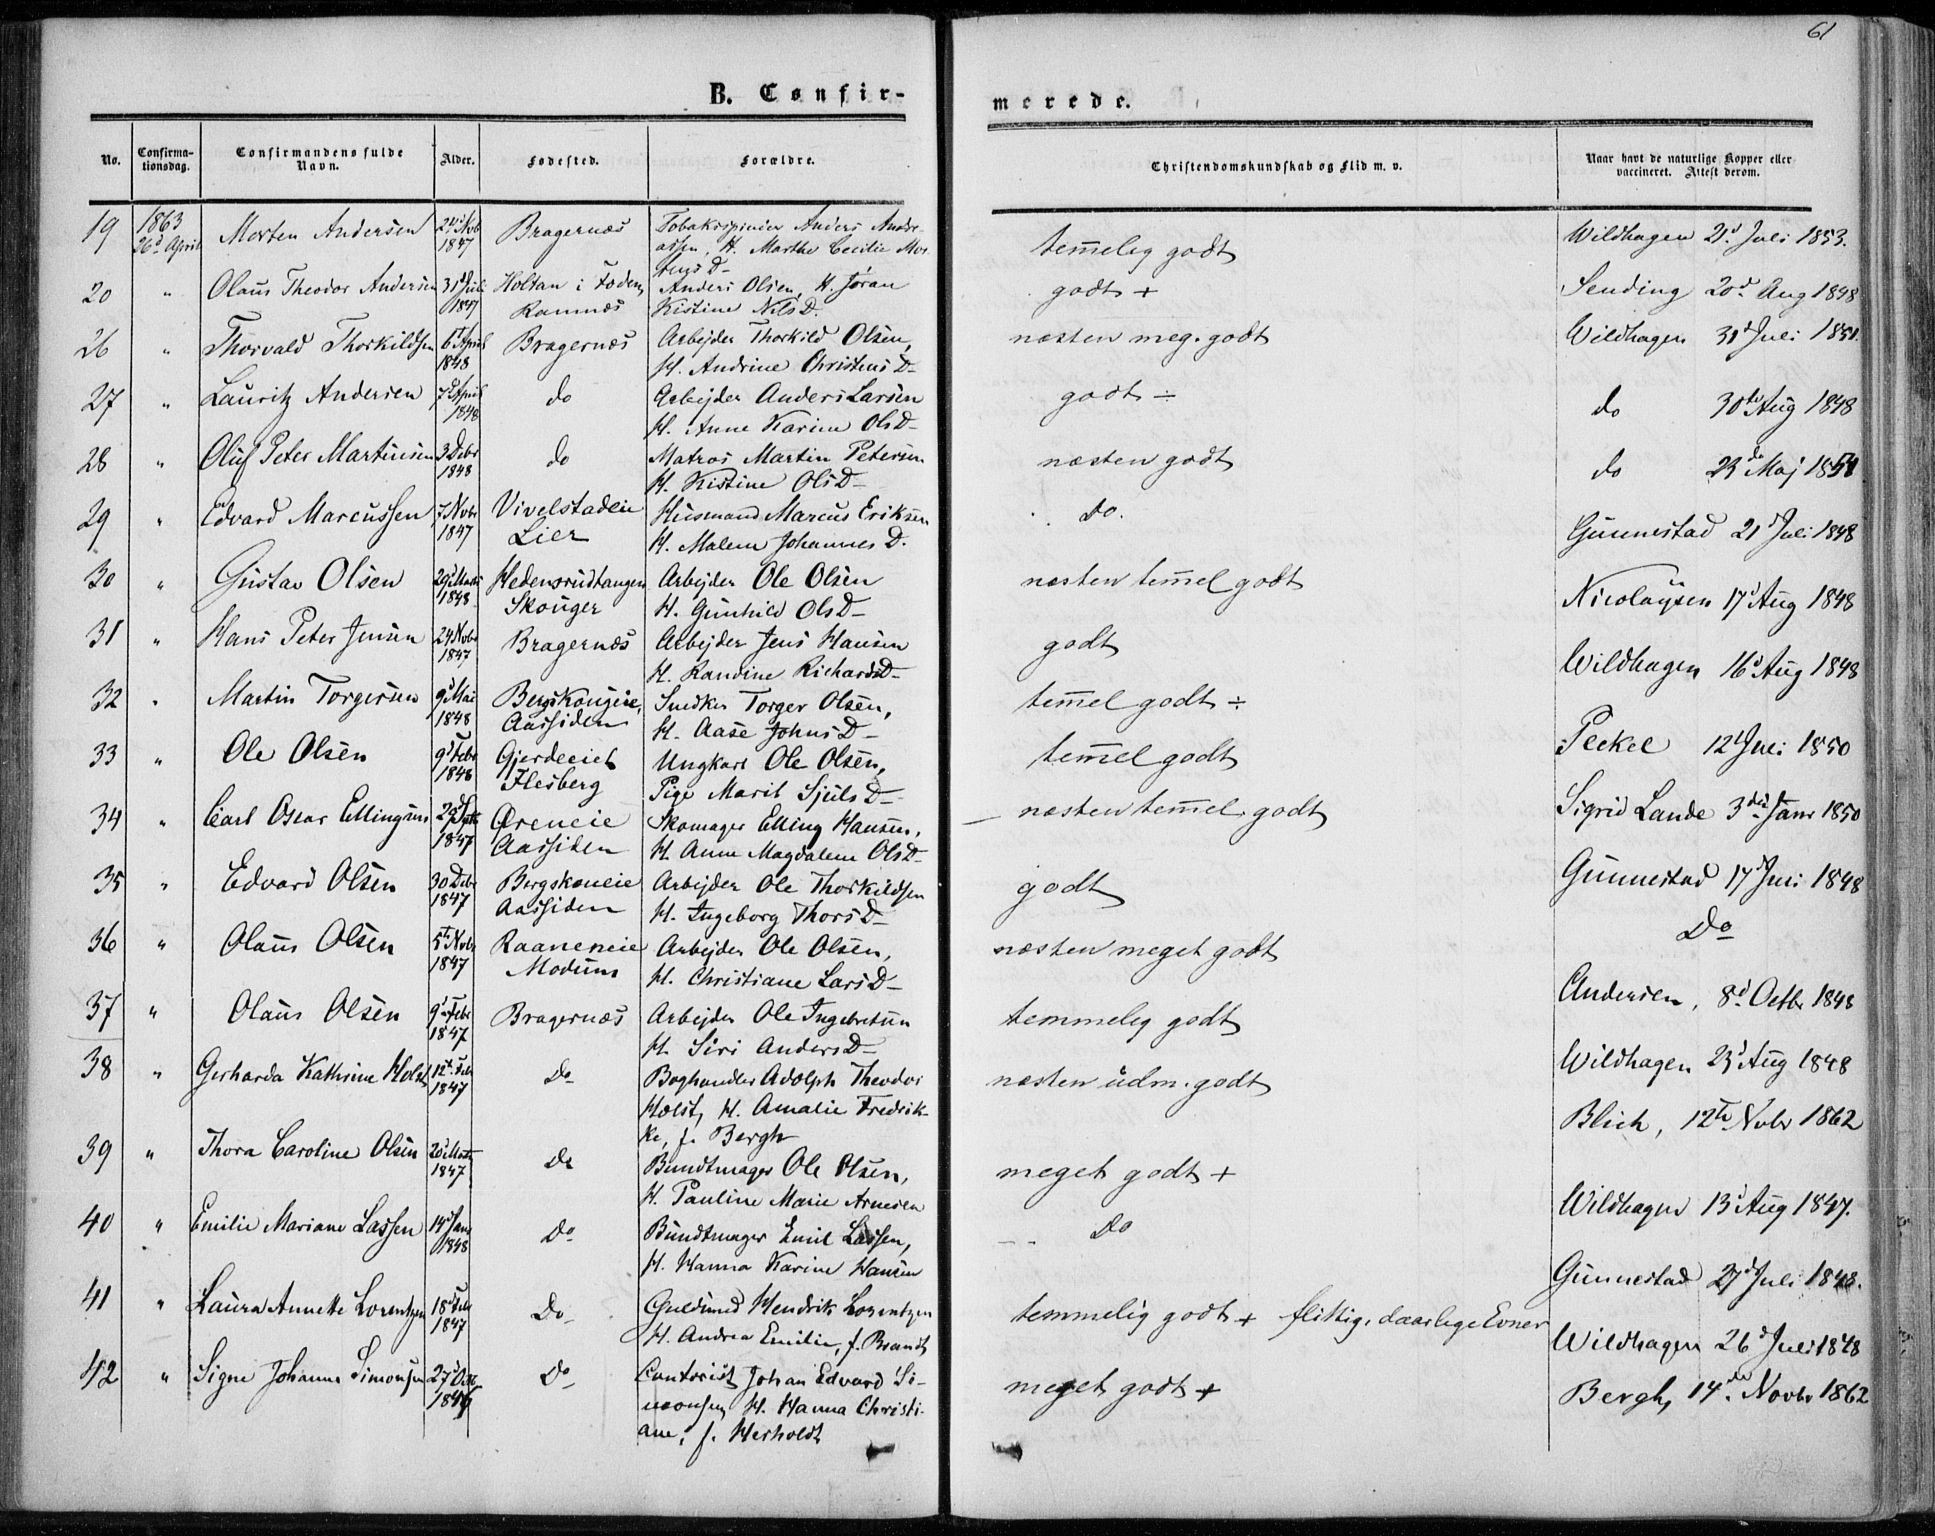 61
B. Confir-
merede.
No.
Confirma-
tionsdag.
Confirmandens fulde
Navn.
Alder.
Fødested.
Forældre.
Christendomskundskab og Flid m. v.
Naar havt de naturlige Kopper eller
vaccineret. Attest derom.
19 1863 26d April Morten Andersen 24d Nvb 1847 Bragernæs Tobakspinder Anders Andre-
assen, H. Marthe Cecilie Mor
tens D- tem̄elig godt Wildhagen 21d Juli 1853.
20 " Olaus Theodor Andersen 31d Juli 1847 Holtan i Fodens Ramnæs Anders Olsen, H. Jøran
Kistine Nils D. godt + Sending 20d Aug 1848
26 " Thorvald Thorkildsen 6t April 1848 Bragernæs Arbejder Thorkild Olsen,
H. Andrine Christens D- næsten meg. godt Wildhagen 31d Juli 1851.
27 " Lauritz Andersen 7d April 1848 do Arbejder Anders Larsen
H. Anne Karine Ols D- godt ÷ do 30te Aug 1848
28 " Oluf Peter Martinsen 3 Debr 1848 do Matros Martin Petersen
H. Kistine Ols D- næsten godt do 23de Maj 1851
29 " Edvard Marcussen 7 Nvbr 1847 Vivelstadeie
Lier Husmand Marcus Eriksen
H. Malene Johannes D. do. Gunnestad 21d Juli 1848
30 " Gustav Olsen 29d Marts 1848 Hedensrudtangen
Skouger Arbejder Ole Olsen
H. Gunhild Ols D- næsten tem̄el godt Nicolaysen 17d Aug 1848
31 " Hans Peter Jensen 24 Nvbr 1847 Bragernæs Arbejder Jens Hansen
H. Randine Richards D- godt Wildhagen 16d Aug 1848
32 " Martin Torgersen 9d Mai 1848 Bergskougeie,
Aassiden Snedker Torger Olsen,
H. Aase Johns D- tem̄el godt ÷ Peckel 12d Juli 1850
33 " Ole Olsen 9d Febr 1848 Gjerdeeiet
Flesberg Ungkarl Ole Olsen,
Pige Marit Sjuls D- tem̄el godt Sigrid Lande 3die Janr 1850
34 " Carl Oscar Ellingsen 1847 Øreneie
Aassiden Skomager Elling Hansen,
H. Anne Magdalene Ols D- næsten tem̄el. godt Gunnestad 17d Juli 1848
35 " Edvard Olsen 30 Debr 1847 Bergskoueie
Aassiden Arbejder Ole Thorkildsen
H. Ingeborg Thors D- godt Do
36 " Olaus Olsen 5te Nvbr 1847 Raaneneie
Modum Arbejder Ole Olsen,
H. Christiane Lars D- næsten meget godt Andersen, 8d Octbr 1848
37 " Olaus Olsen 9d Febr 1847 Bragernæs Arbejder Ole Ingebretsen
H. Siri Anders D- temmelig godt Wildhagen 23d Aug 1848
38 " Gerharda Kathrine Holst 12t Feb 1847 Do Boghandler Adolph Theodor
Holst, H. Amalie Fredrik-
ke, f. Bergh næsten udm. godt Blich, 12te Nvbr 1862
39 " Thora Caroline Olsen 20d Marts 1847 Do Bundtmager Ole Olsen,
H. Pauline Marie Arnesen meget godt + Wildhagen 13d Aug 1847.
40 " Emilie Mariane Lassen 14d Janr 1848 Do Bundtmager Emil Lassen,
H. Hanna Karine Hansen Do Gunnestad 27d Juli 1848.
41 " Laura Annette Lorentzen 18d Feb 1847 Do Guldsmed Hendrik Lorentzen
H. Andrea Emilie, f. Brandt temmelig godt + flittig, daarlige Evner Wildhagen 26d Juli 1848
42 " Signe Johanne Simonsen 27d Oct Do Contorist Johan Edvard Si-
monsen, H. Hanna Christi-
ane, f. Herholdt meget godt + Bergh, 14de Novbr 1862